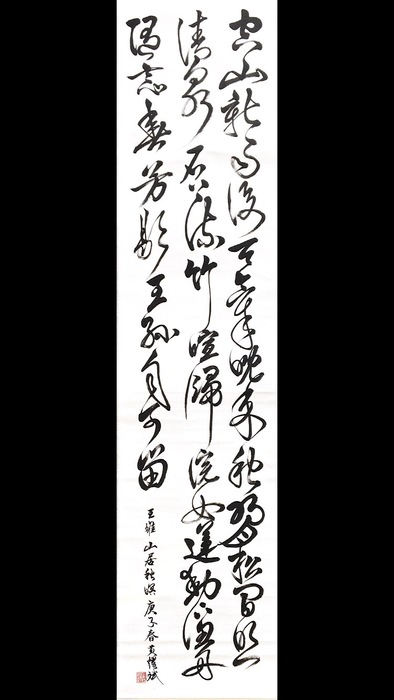 空山新雨後天氣晚來秋明月松間照
清泉石上流竹喧歸浣女蓮動下漁舟
隨意春芳歇王孫自可留
王維 山居秋暝 庚子春